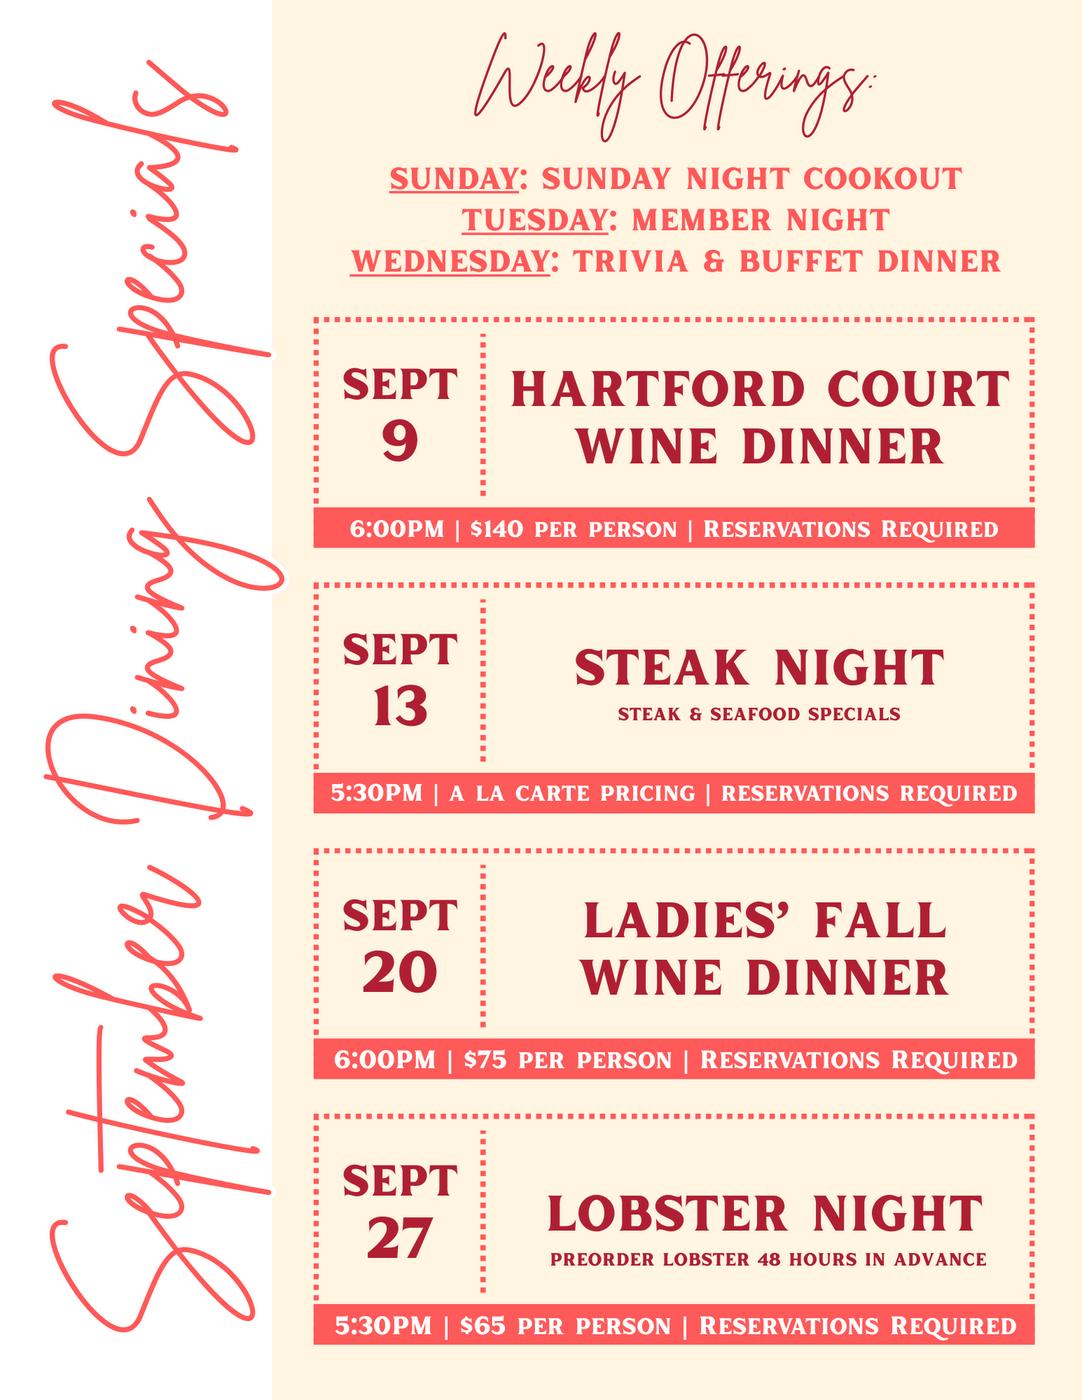 September Dining Specials
Weekly Offerings:
SUNDAY: SUNDAY NIGHT COOKOUT
TUESDAY: MEMBER NIGHT
WEDNESDAY: TRIVIA & BUFFET DINNER
SEPT
9
HARTFORD COURT
WINE DINNER
6:00PM | $140 PER PERSON | RESERVATIONS REQUIRED
SEPT
13
STEAK NIGHT
STEAK & SEAFOOD SPECIALS
5:30PM | A LA CARTE PRICING | RESERVATIONS REQUIRED
SEPT
20
LADIES’ FALL
WINE DINNER
6:00PM | $75 PER PERSON | RESERVATIONS REQUIRED
SEPT
27
LOBSTER NIGHT
PREORDER LOBSTER 48 HOURS IN ADVANCE
5:30PM | $65 PER PERSON | RESERVATIONS REQUIRED